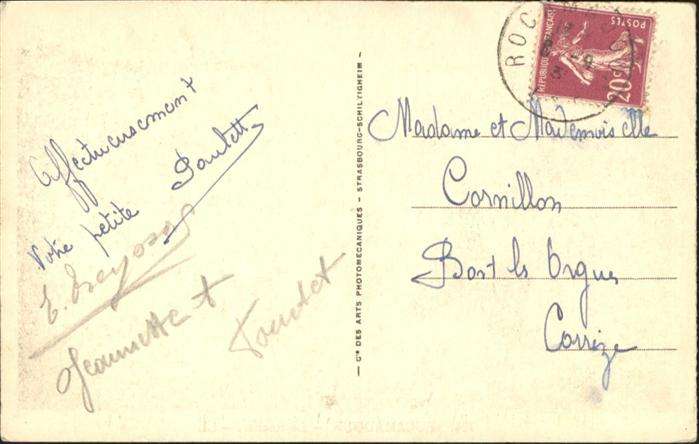 Affectueusement
Votre petite Paulette
Jeannette
— Cie DES ARTS PHOTOMECANIQUES - STRASBOURG-SCHILTIGHEIM —
ROC
REPUBLIQUE FRANÇAISE
POSTES
20c
Madame et Mademoiselle
Cornillon
Bort les Orgues
Corrèze